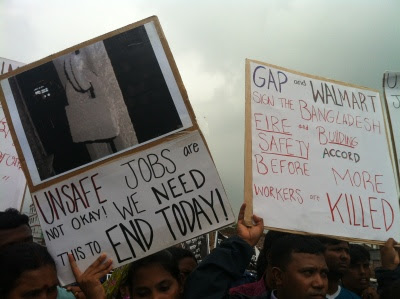 UNSAFE JOBS are
NOT OKAY! WE NEED
THIS to END TODAY!
GAP and WALMART
SIGN THE BANGLADESH
FIRE and BUILDING
SAFETY ACCORD
BEFORE MORE
WORKERS are KILLED